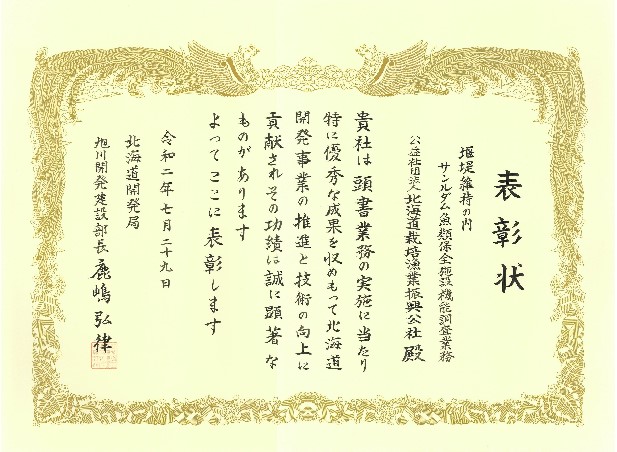 表彰状
堰堤維持の内
サンルダム魚類保全施設機能調査業務
公益社団法人 北海道栽培漁業振興公社 殿
貴社は頭書業務の実施に当たり
特に優秀な成果を収めもって北海道
開発事業の推進と技術の向上に
貢献されその功績は誠に顕著な
ものがあります
よってここに表彰します
令和二年七月二十九日
北海道開発局
旭川開発建設部長 鹿嶋弘律